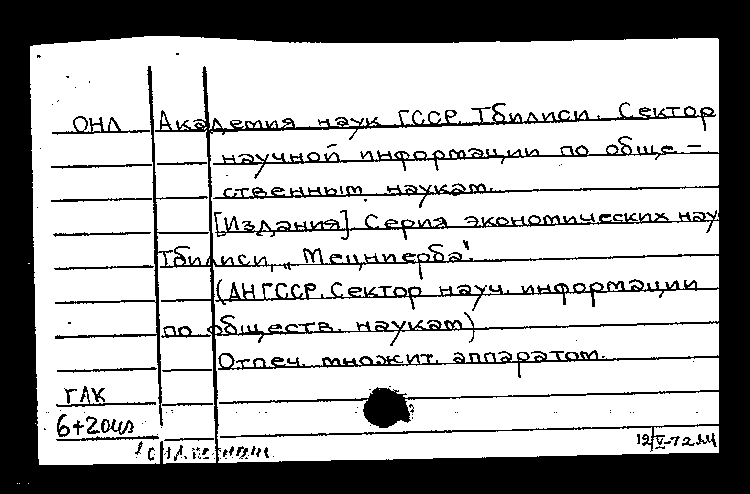 ОНЛ Академия наук ГССР. Тбилиси. Сектор
научной информации по обще-
ственным наукам.
[Издания]. Серия экономических нау
Тбилиси, „Мецниерба".
(АН ГССР. Сектор науч. информации
по обществ. наукам)
Отпеч. множит. аппаратом.
ГАК
12/V-72